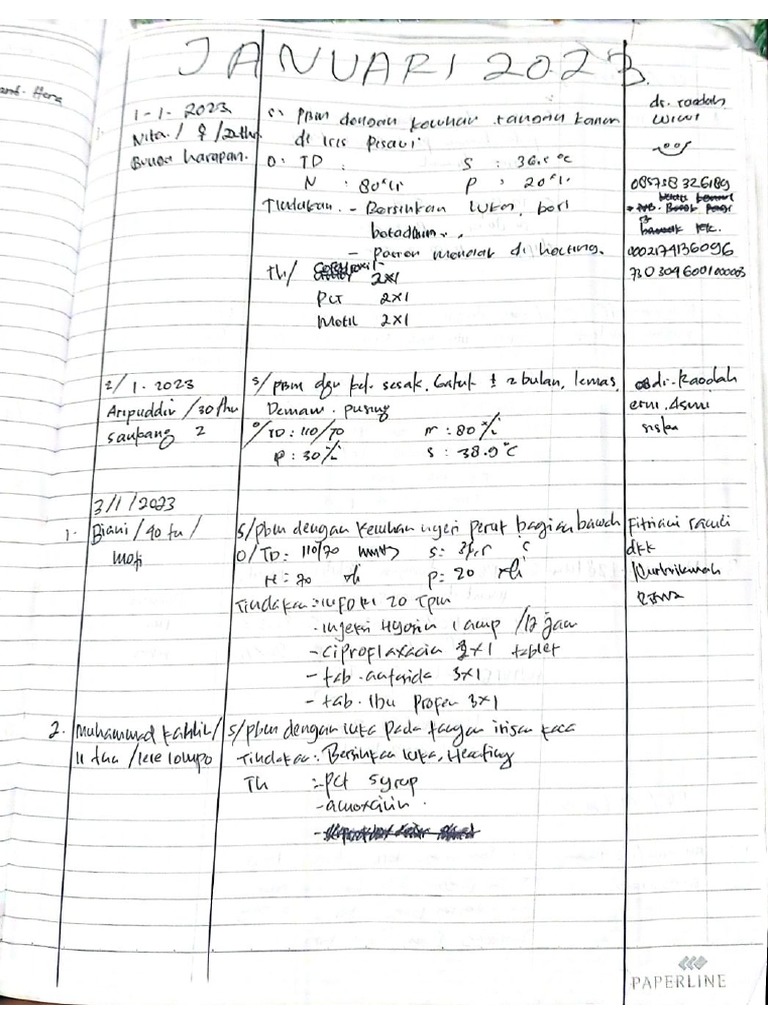 JANUARI 2023
1-1-2023
Nita / ♀ / 22 thn
Bunga harapan.
S: PBM dengan keluhan tangan kanan
di iris Pisau.
O: TD :
S : 36.5 °C
N : 80 x/i
P : 20 x/i
Tindakan : - Bersihkan luka, beri
betadhin.
- Pasien menolak di hecting.
Th/
2x1
Pct 2x1
Motil 2x1
dr. raodah
wiwi
085758326189
0002174136096
2/1.2023
Aripuddin /30 thn
saupang 2
S/ PBM dgn kel. sesak, batuk ± 2 bulan, lemas,
Demam. pusing
O/ TD : 110/70
N : 80 x/i
P : 30 x/i
S : 38.9°C
dr. Raodah
erni. Asmi
3/1/2023
1. Biani / 40 tn /
S/ pbm dengan keluhan nyeri perut bagian bawah
O/ TD : 110/70 mmHg
N : 70 x/i
P : 20 x/i
Tindakan : IUFD RL 20 Tpm
- injeksi Hyosin 1 amp /12 jam
- ciproflaxacin 2x1 tablet
- tab. antasida 3x1
- tab. Ibu Profen 3x1
Fitriani
dkk
2. Muhammad
11 thn / lere lompo
S/ pbm dengan luka pada tangan irisan kaca
Tindakan : Bersihkan luka, Heacting
Th :- pct syrup
- amoxcilin
PAPERLINE